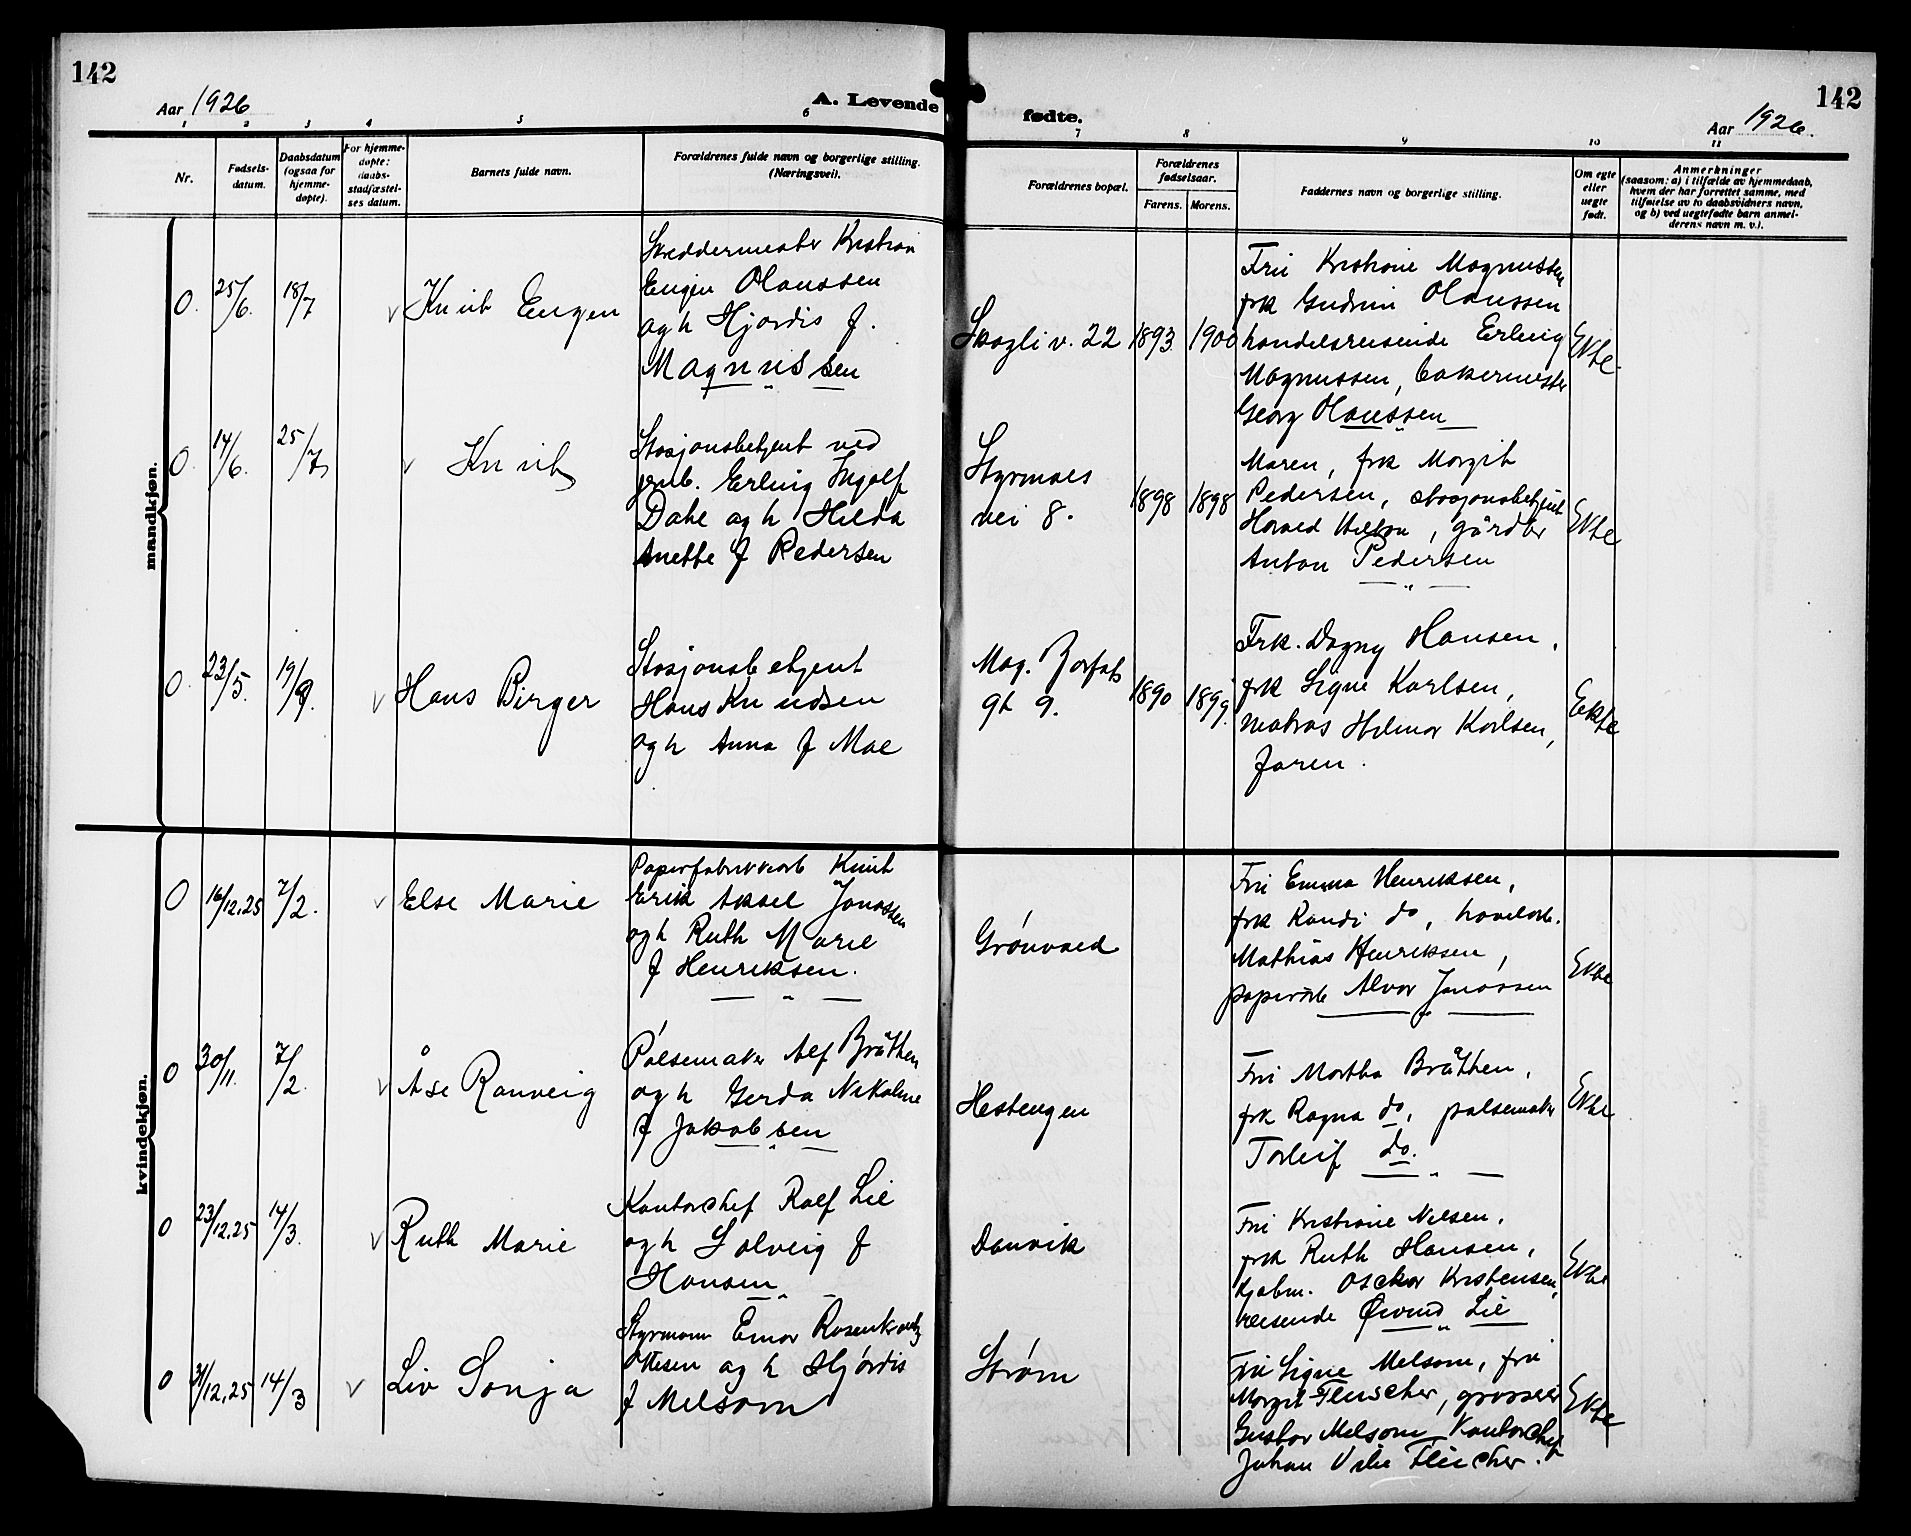 142
142
Aar 1926
A. Levende
fødte.
Aar 1926.
1 2 3 4 5 6 7 8 9 10 11
Nr.
Fødsels-
datum.
Daabsdatum
(ogsaa for
hjemme-
døpte).
For hjemme-
døpte:
daabs-
stadfæstel-
ses datum.
Barnets fulde navn.
Forældrenes fulde navn og borgerlige stilling.
(Næringsvei).
Forældrenes bopæl.
Forældrenes
fødselsaar.
Farens. Morens.
Faddernes navn og borgerlige stilling.
Om egte
eller
uegte
født.
Anmerkninger
(saasom: a) i tilfælde av hjemmedaab,
hvem der har forrettet samme, med
tilføielse av to daabsvidners navn,
og b) ved uegtefødte barn anmel-
derens navn m. v.).
mandkjøn.
0. 25/6. 18/7 v Knut Eugen
Skreddermester Kristian
Eugen Olaussen
og h Hjørdis f.
Magnussen
Skogli v. 22 1893 1900
Fru Kristiane Magnussen
frk Gudrun Olaussen
handelsreisende Erling
Magnussen, bakermester
Georg Olaussen
Ekte.
0. 14/6. 25/7 v Knut
Stasjonsbetjent ved
jernb. Erling Ingolf
Dahl og h Hilda
Anette f Pedersen
Styrmoes
vei 8. 1898 1898
Moren, frk Margit
Pedersen, stasjonsbetjent
gårdbr
Anton Pedersen
Ekte
0. 23/5. 19/9. v Hans Birger
Stasjonsbetjent
Hans Knudsen
og h Anna f Moe
gt 9. 1890 1899.
Frk. Dagny Hansen,
frk Signe Karlsen,
matros Hilmar Karlsen,
faren.
Eekte
kvindekjøn.
0 16/12.25 7/2. v Else Marie
Papirfabrikkarb Knut
Erik Aksel Jonassen
og h Ruth Marie
f Henriksen.
Grønvold
Fru Emma Henriksen,
frk Randi do,
Mathias Henriksen,
papirarb Alvar Jonassen
Ekte
0 30/11. 7/2. v Åse Ranveig
Pølsemaker Alf Bråthen
og h Gerda Nikoline
f Jakobsen
Hestengen
Fru Martha Bråthen,
frk Ragna do, pølsemaker
Torleif do.
Ekte
0 23/12.25 14/3. v Ruth Marie
Kontorchef Ralf Lie
og h Solveig f
Hansen
Danvik
Fru Kristiane Nilsen,
frk Ruth Hansen,
kjøbm. Osckar Kristensen,
reisende Øivind Lie
Ekte
0 31/12.25 14/3 v Liv Sonja
Styrmann Einar Rosenkrantz
Ottesen og h Hjørdis
f Melsom
Strøm
Fru Signe Melsom, fru
Margit Fleischer, grosserer
Gustav Melsom, Kontorchef
Johan Fleischer.
Ekte